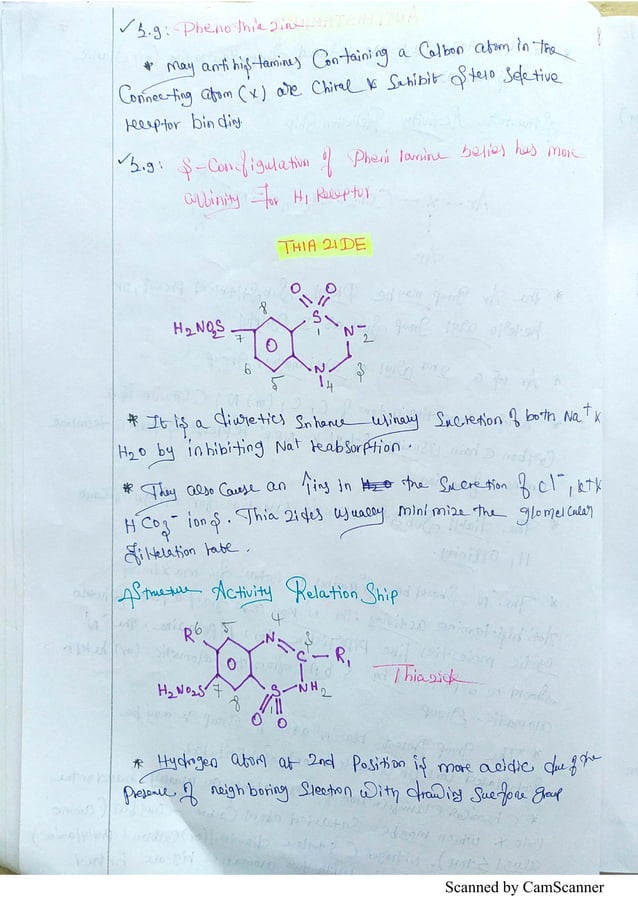 E.g: Phenothiazine
8
* May antihistamines Containing a Carbon atom in the
Connecting atom (X) are Chiral & Exhibit Stereo Selective
receptor binding
E.g: S-Configulation of Pheni ramine has more
affinity for H1 Receptor
THIAZIDE
O O
8 S
H2NO2S 7 1 N 2
O
6 N 3
5 4
* It is a diuretics Enhance urinary Sucretion of both Na+ &
H2O by inhibiting Na+ reabsorption.
* They also Cause an ↑ing in the Sucretion of Cl-, K+ &
HCO3- ions. Thiazides usually minimize the glomelcular
filtelation rate.
Structure Activity Relation Ship
4
R 6 5 N 3
O C - R1
H2NO2S 7 S - NH 2 Thiazide
8 1
O O
* Hydrogen atom at 2nd Position is more acidic due of the
Presence of neighboring Electron with drawing Sulfone group
Scanned by CamScanner